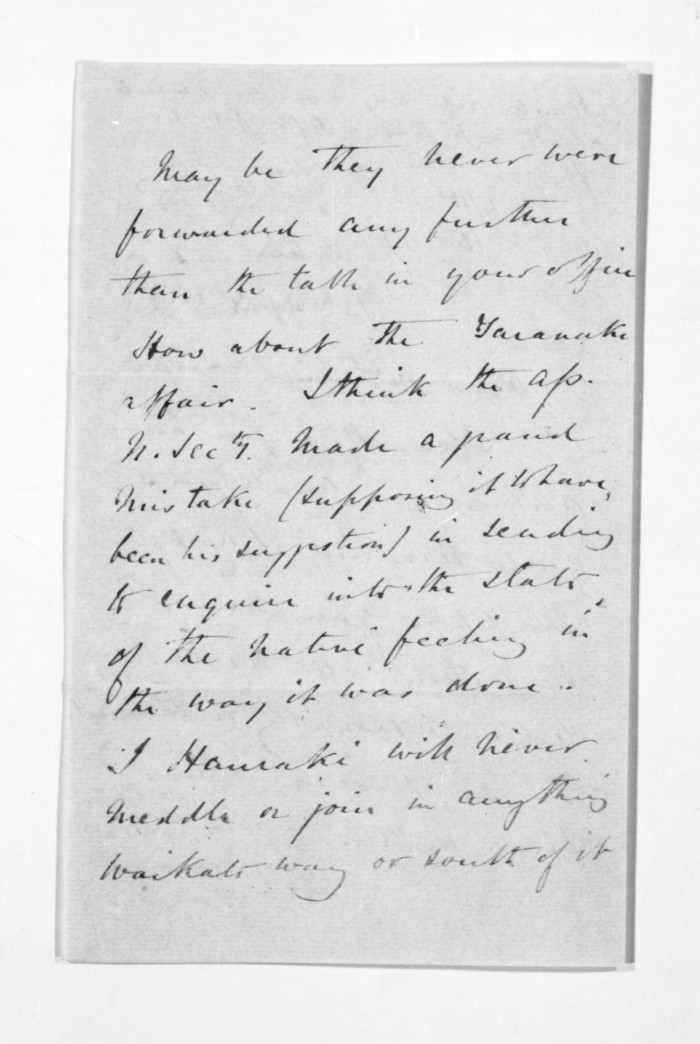 May be they never were
forwarded any further
than the table in your office
How about the Taranaki
affair. I think the Ass.
N. Secty. made a grand
mistake (supposing it to have
been his suggestion) in sending
to enquire into the state
of the native feeling in
the way it was done.
I Hauraki will never
meddle or join in anything
Waikato way or south of it